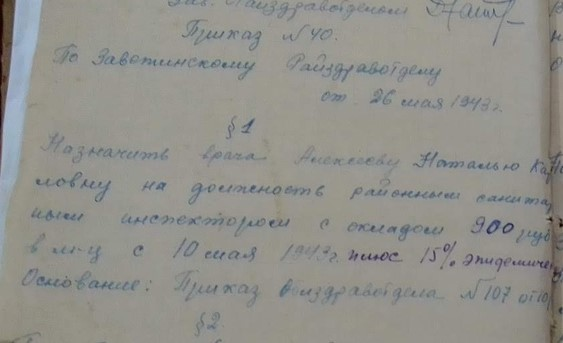 Зав. Райздравотделом
Приказ №40.
По Завожинскому Райздравотделу
от. 26 мая 1943 г.
§1
Назначить врача Алексееву Наталью Кар
ловну на должность районным санитар
ным инспектором с окладом 900 руб
в м-ц с 10 мая 1943 г. плюс 15% эпидемичес
Основание: Приказ Облздравотдела №107 от 10
§2